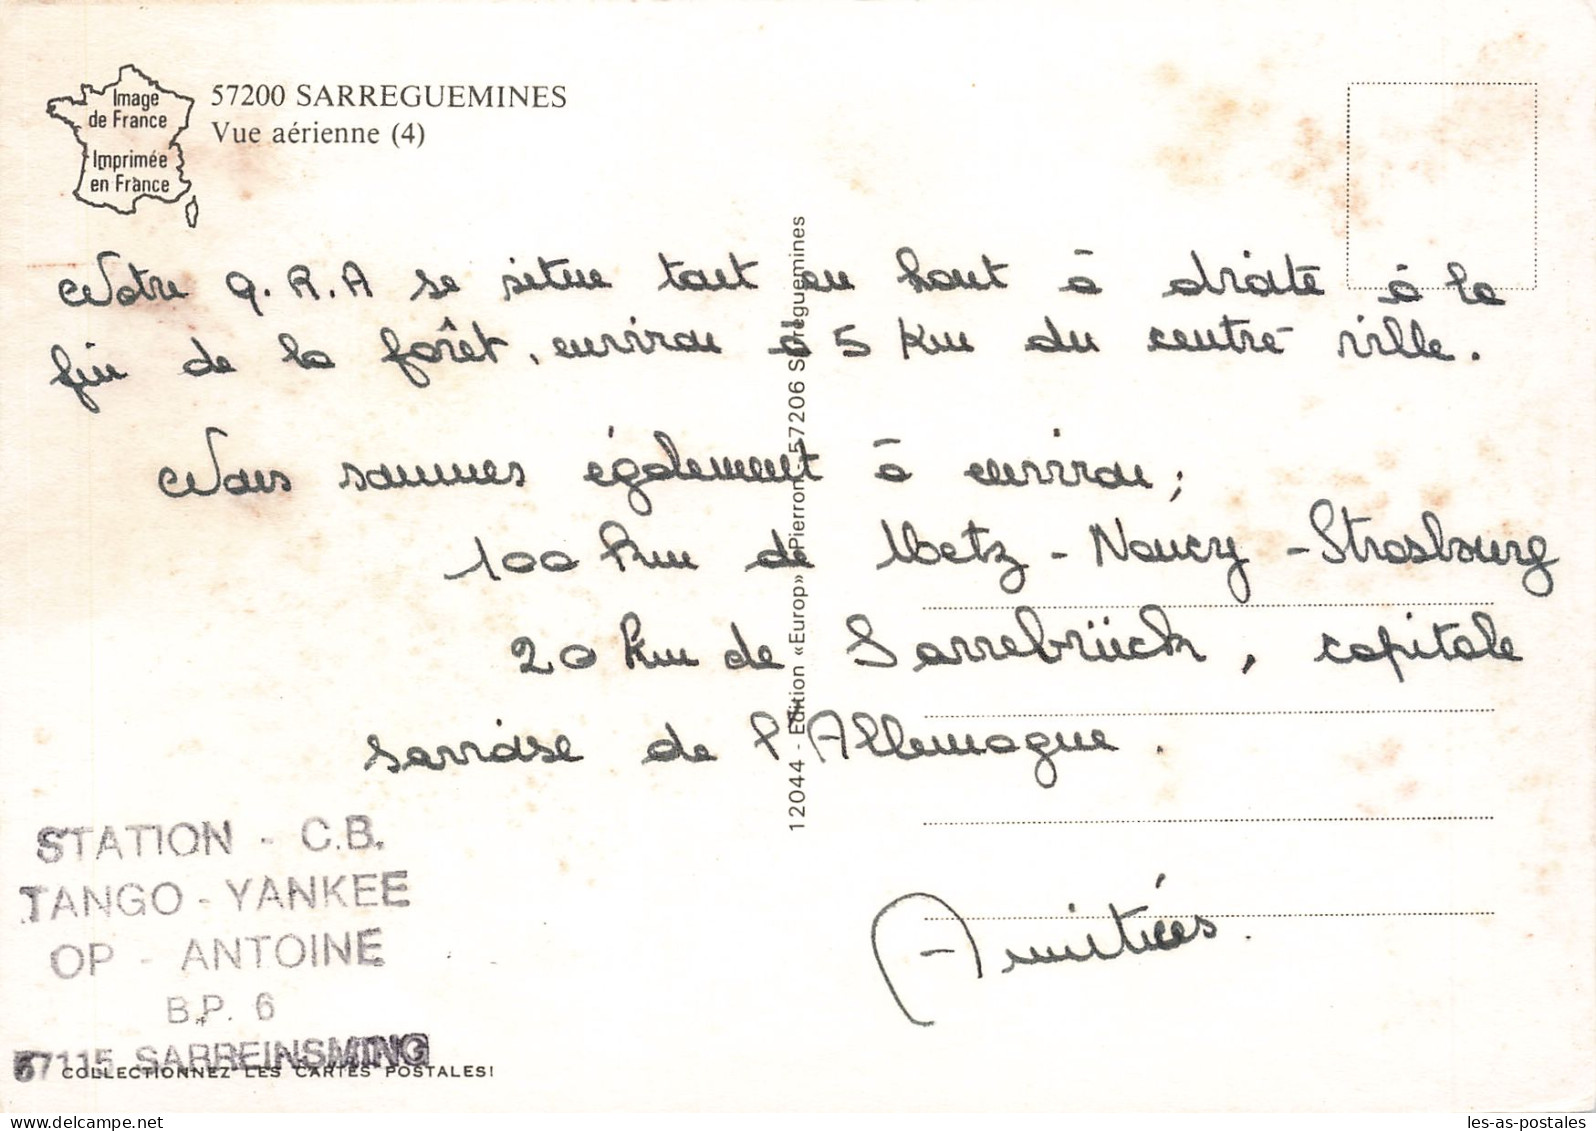 Image
de France
Imprimée
en France
57200 SARREGUEMINES
Vue aérienne (4)
Notre Q.R.A se situe tout en haut à droite à la
fin de la forêt, environ à 5 Km du centre ville.
Nous sommes également à environ;
100 Km de Metz - Nancy - Strasbourg
20 Km de Sarrebrück, capitale
sarroise de l'Allemagne.
Amitiées.
12044 - Edition «Europ» Pierron 57206 Sarreguemines
STATION - C.B.
TANGO - YANKEE
OP - ANTOINE
B.P. 6
57115 SARREINSMING
COLLECTIONNEZ LES CARTES POSTALES!
les-as-postales